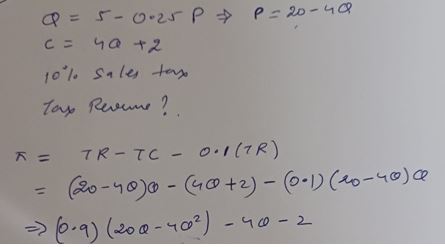 Q = 5 - 0.25 P ⇒ P = 20 - 4Q
C = 4Q + 2
10% Sales tax
Tax Revenue?
π = TR - TC - 0.1 (TR)
= (20 - 4Q)Q - (4Q + 2) - (0.1) (20 - 4Q) Q
⇒ (0.9) (20Q - 4Q²) - 4Q - 2